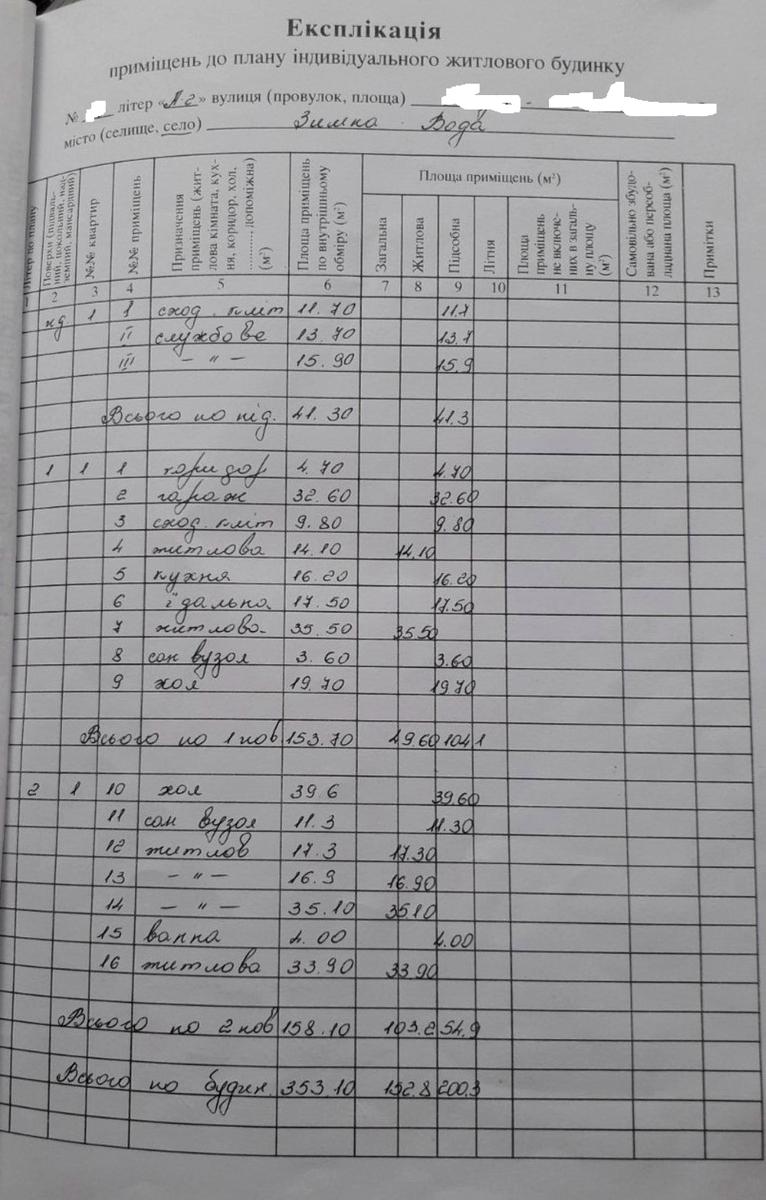 Експлікація
приміщень до плану індивідуального житлового будинку
№ літер «А-2» вулиця (провулок, площа)
місто (селище, село) Зимна Вода
Літер по плану Поверхи (підвальний, цокольний, надземний, мансардний) №№ квартир №№ приміщень Призначення приміщень (житлова кімната, кухня, коридор, хол, ............, допоміжна) (м²) Площа приміщень по внутрішньому обміру (м²) Площа приміщень (м²) Самовільно збудована або переобладнана площа (м²) Примітки
Загальна Житлова Підсобна Літня Площа приміщень не включених в загальну площу (м²)
2 3 4 5 6 7 8 9 10 11 12 13
підв. 1 I сход. кліт 11.70 11.7
II службове 13.70 13.7
III — " — 15.90 15.9
Всього по під. 41.30 41.3
1 1 1 коридор 4.70 4.70
2 гараж 32.60 32.60
3 сход. кліт 9.80 9.80
4 житлова 14.10 14.10
5 кухня 16.20 16.20
6 їдальна 17.50 17.50
7 житлова 35.50 35.50
8 сан вузол 3.60 3.60
9 хол 19.70 19.70
Всього по 1 пов 153.70 49.60 104.1
2 1 10 хол 39.6 39.60
11 сан вузол 11.3 11.30
12 житлов 17.3 17.30
13 — " — 16.9 16.90
14 — " — 35.10 35.10
15 ванна 4.00 4.00
16 житлова 33.90 33.90
Всього по 2 пов 158.10 103.2 54.9
Всього по будин. 353.10 152.8 200.3